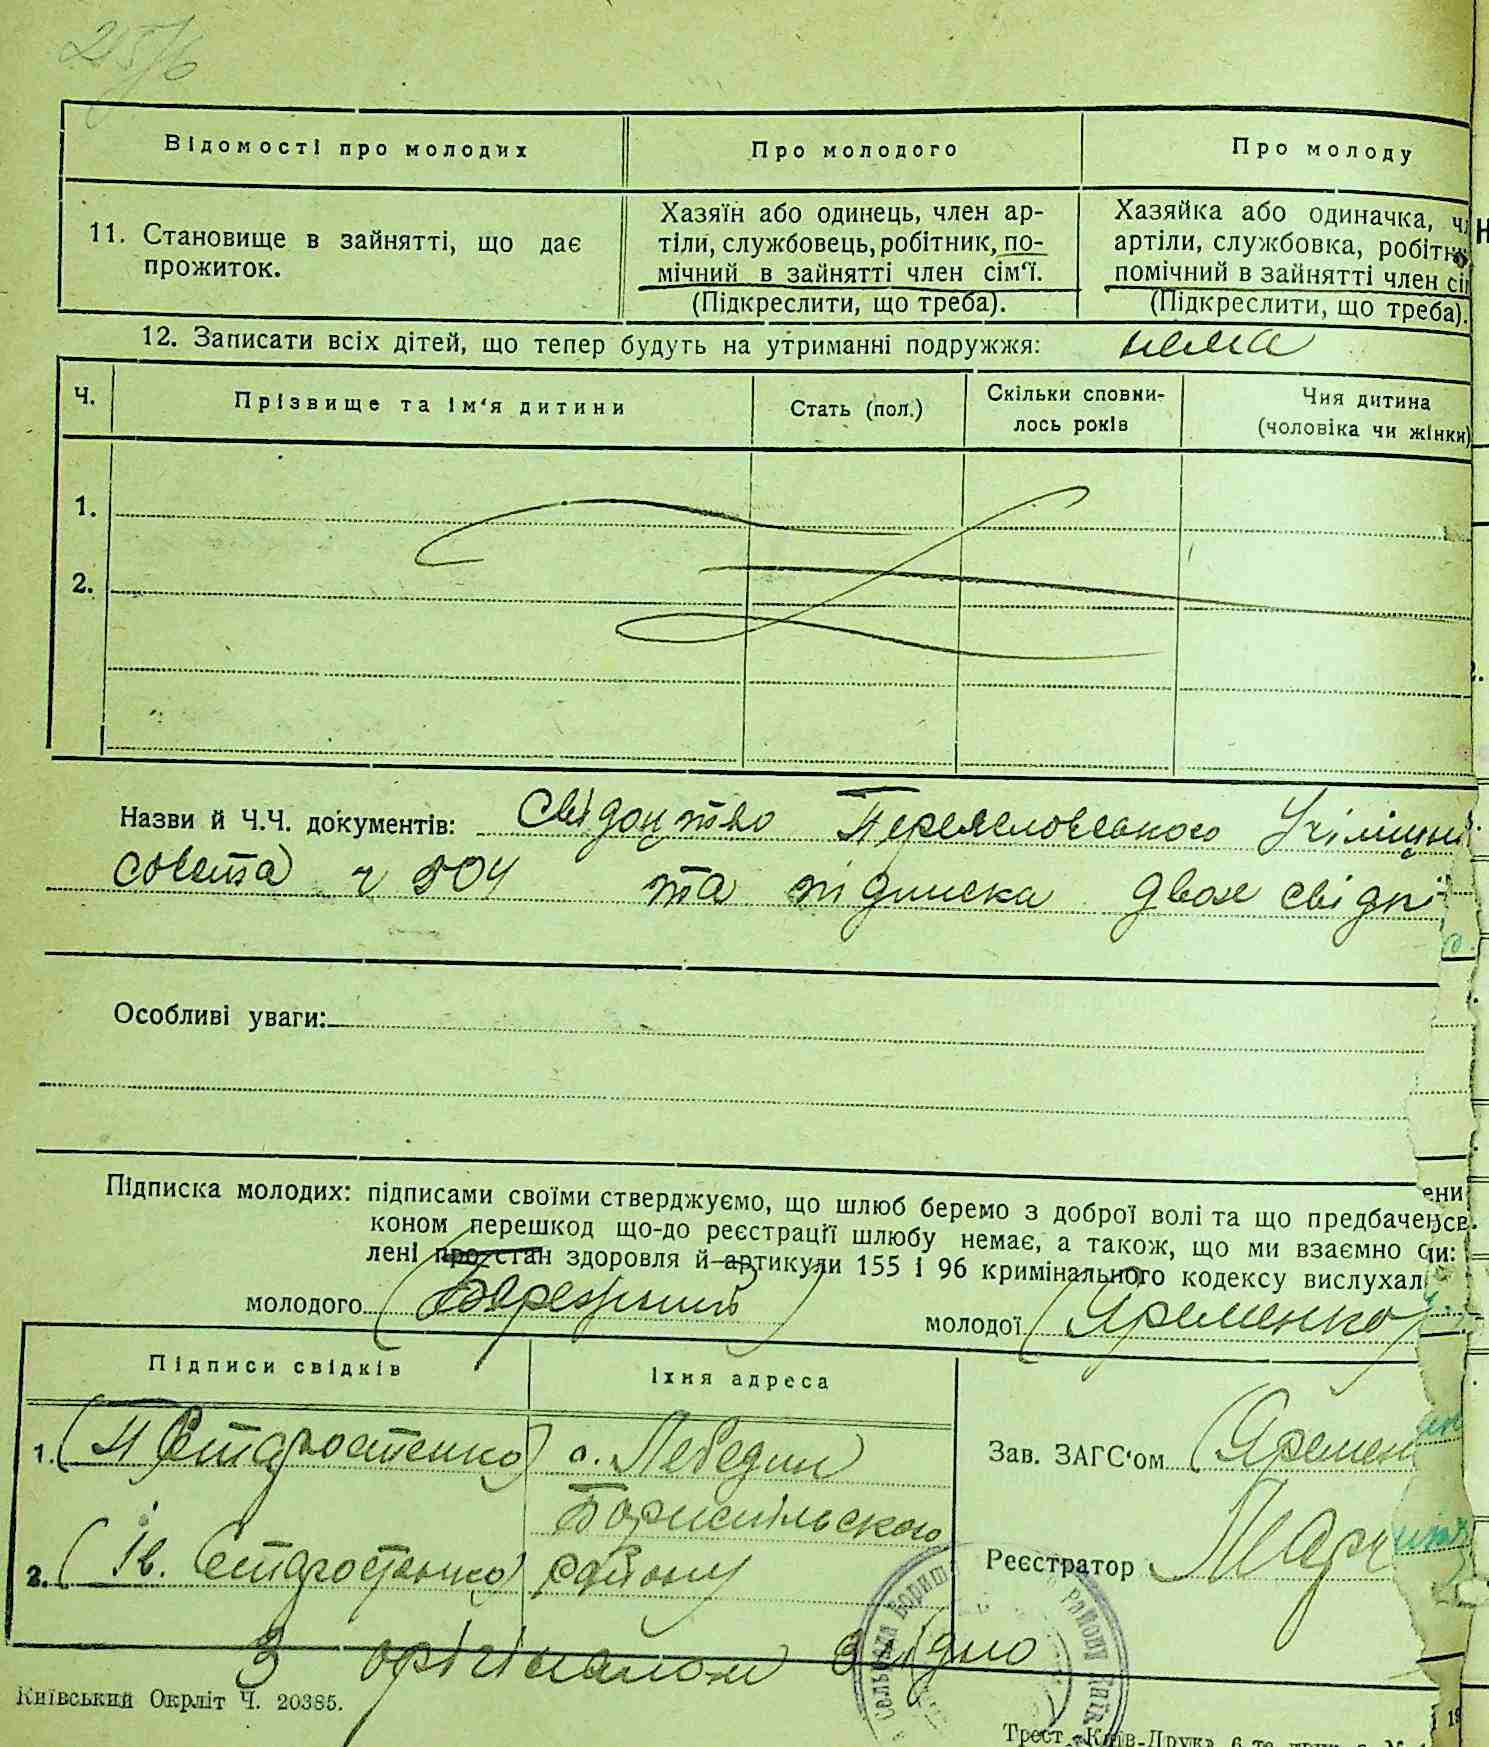 215/6
Відомості про молодих
Про молодого
Про молоду
11. Становище в зайнятті, що дає
прожиток.
Хазяїн або одинець, член ар-
тіли, службовець, робітник, по-
мічний в зайнятті член сім'ї.
(Підкреслити, що треба).
Хазяйка або одиначка,
артіли, службовка,
помічний в зайнятті член
(Підкреслити, що треба).
12. Записати всіх дітей, що тепер будуть на утриманні подружжя: нема
Ч.
Прізвище та ім'я дитини
Стать (пол.)
Скільки сповни-
лось років
Чия дитина
(чоловіка чи жінки)
1.
2.
Назви й Ч.Ч. документів: Свідоцтво Переяславського
совета ч 504 та підписка двох
Особливі уваги:
Підписка молодих: підписами своїми стверджуємо, що шлюб беремо з доброї волі та що
коном перешкод що-до реєстрації шлюбу немає, а також, що ми взаємно
лені про стан здоровля й артикули 155 і 96 кримінального кодексу
молодого (Бережний)
молодої (Яременко)
Підписи свідків
Їхня адреса
1. (Н Старостенко)
с. Лебедин
Бориспільского
2. (Ів. Старостенко)
району
Зав. ЗАГС'ом
Реєстратор
З орігіналом згідно
Київський Окрліт Ч. 20385.
Трест «Київ-Друк»